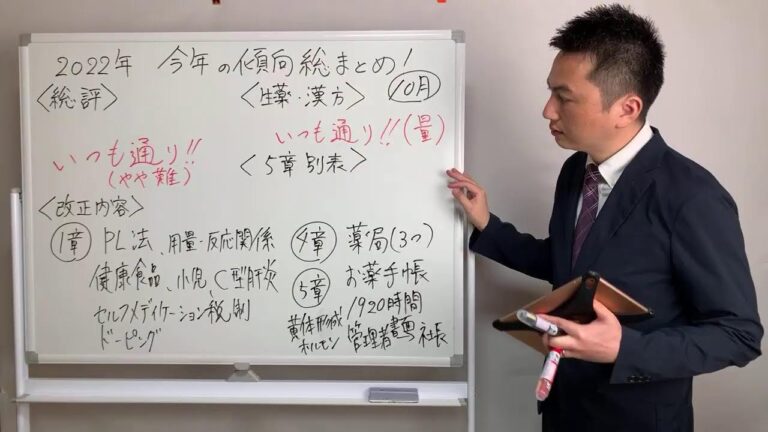 2022年 今年の傾向総まとめ!
<総評>
<生薬・漢方> 10月
いつも通り!!
(やや難)
いつも通り!!(量)
<5章別表>
<改正内容>
1章 PL法、用量・反応関係
健康食品、小児、C型肝炎
セルフメディケーション税制
ドーピング
4章 薬局(3つ)
お薬手帳
5章 1920時間
黄体形成
ホルモン
管理者 書面 社長